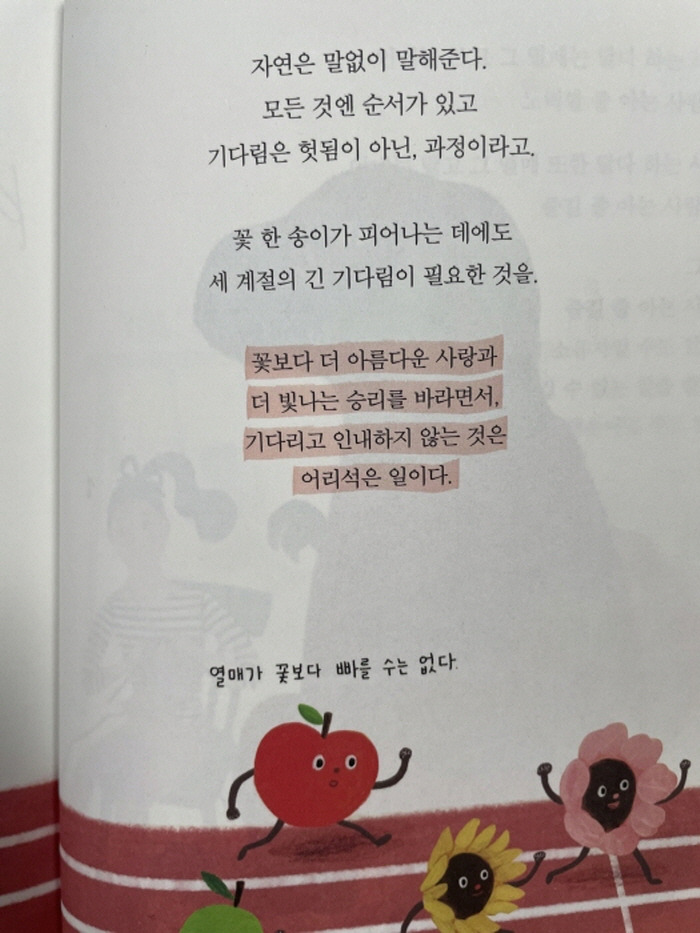 자연은 말없이 말해준다.
모든 것엔 순서가 있고
기다림은 헛됨이 아닌, 과정이라고.
꽃 한 송이가 피어나는 데에도
세 계절의 긴 기다림이 필요한 것을.
꽃보다 더 아름다운 사랑과
더 빛나는 승리를 바라면서,
기다리고 인내하지 않는 것은
어리석은 일이다.
열매가 꽃보다 빠를 수는 없다.